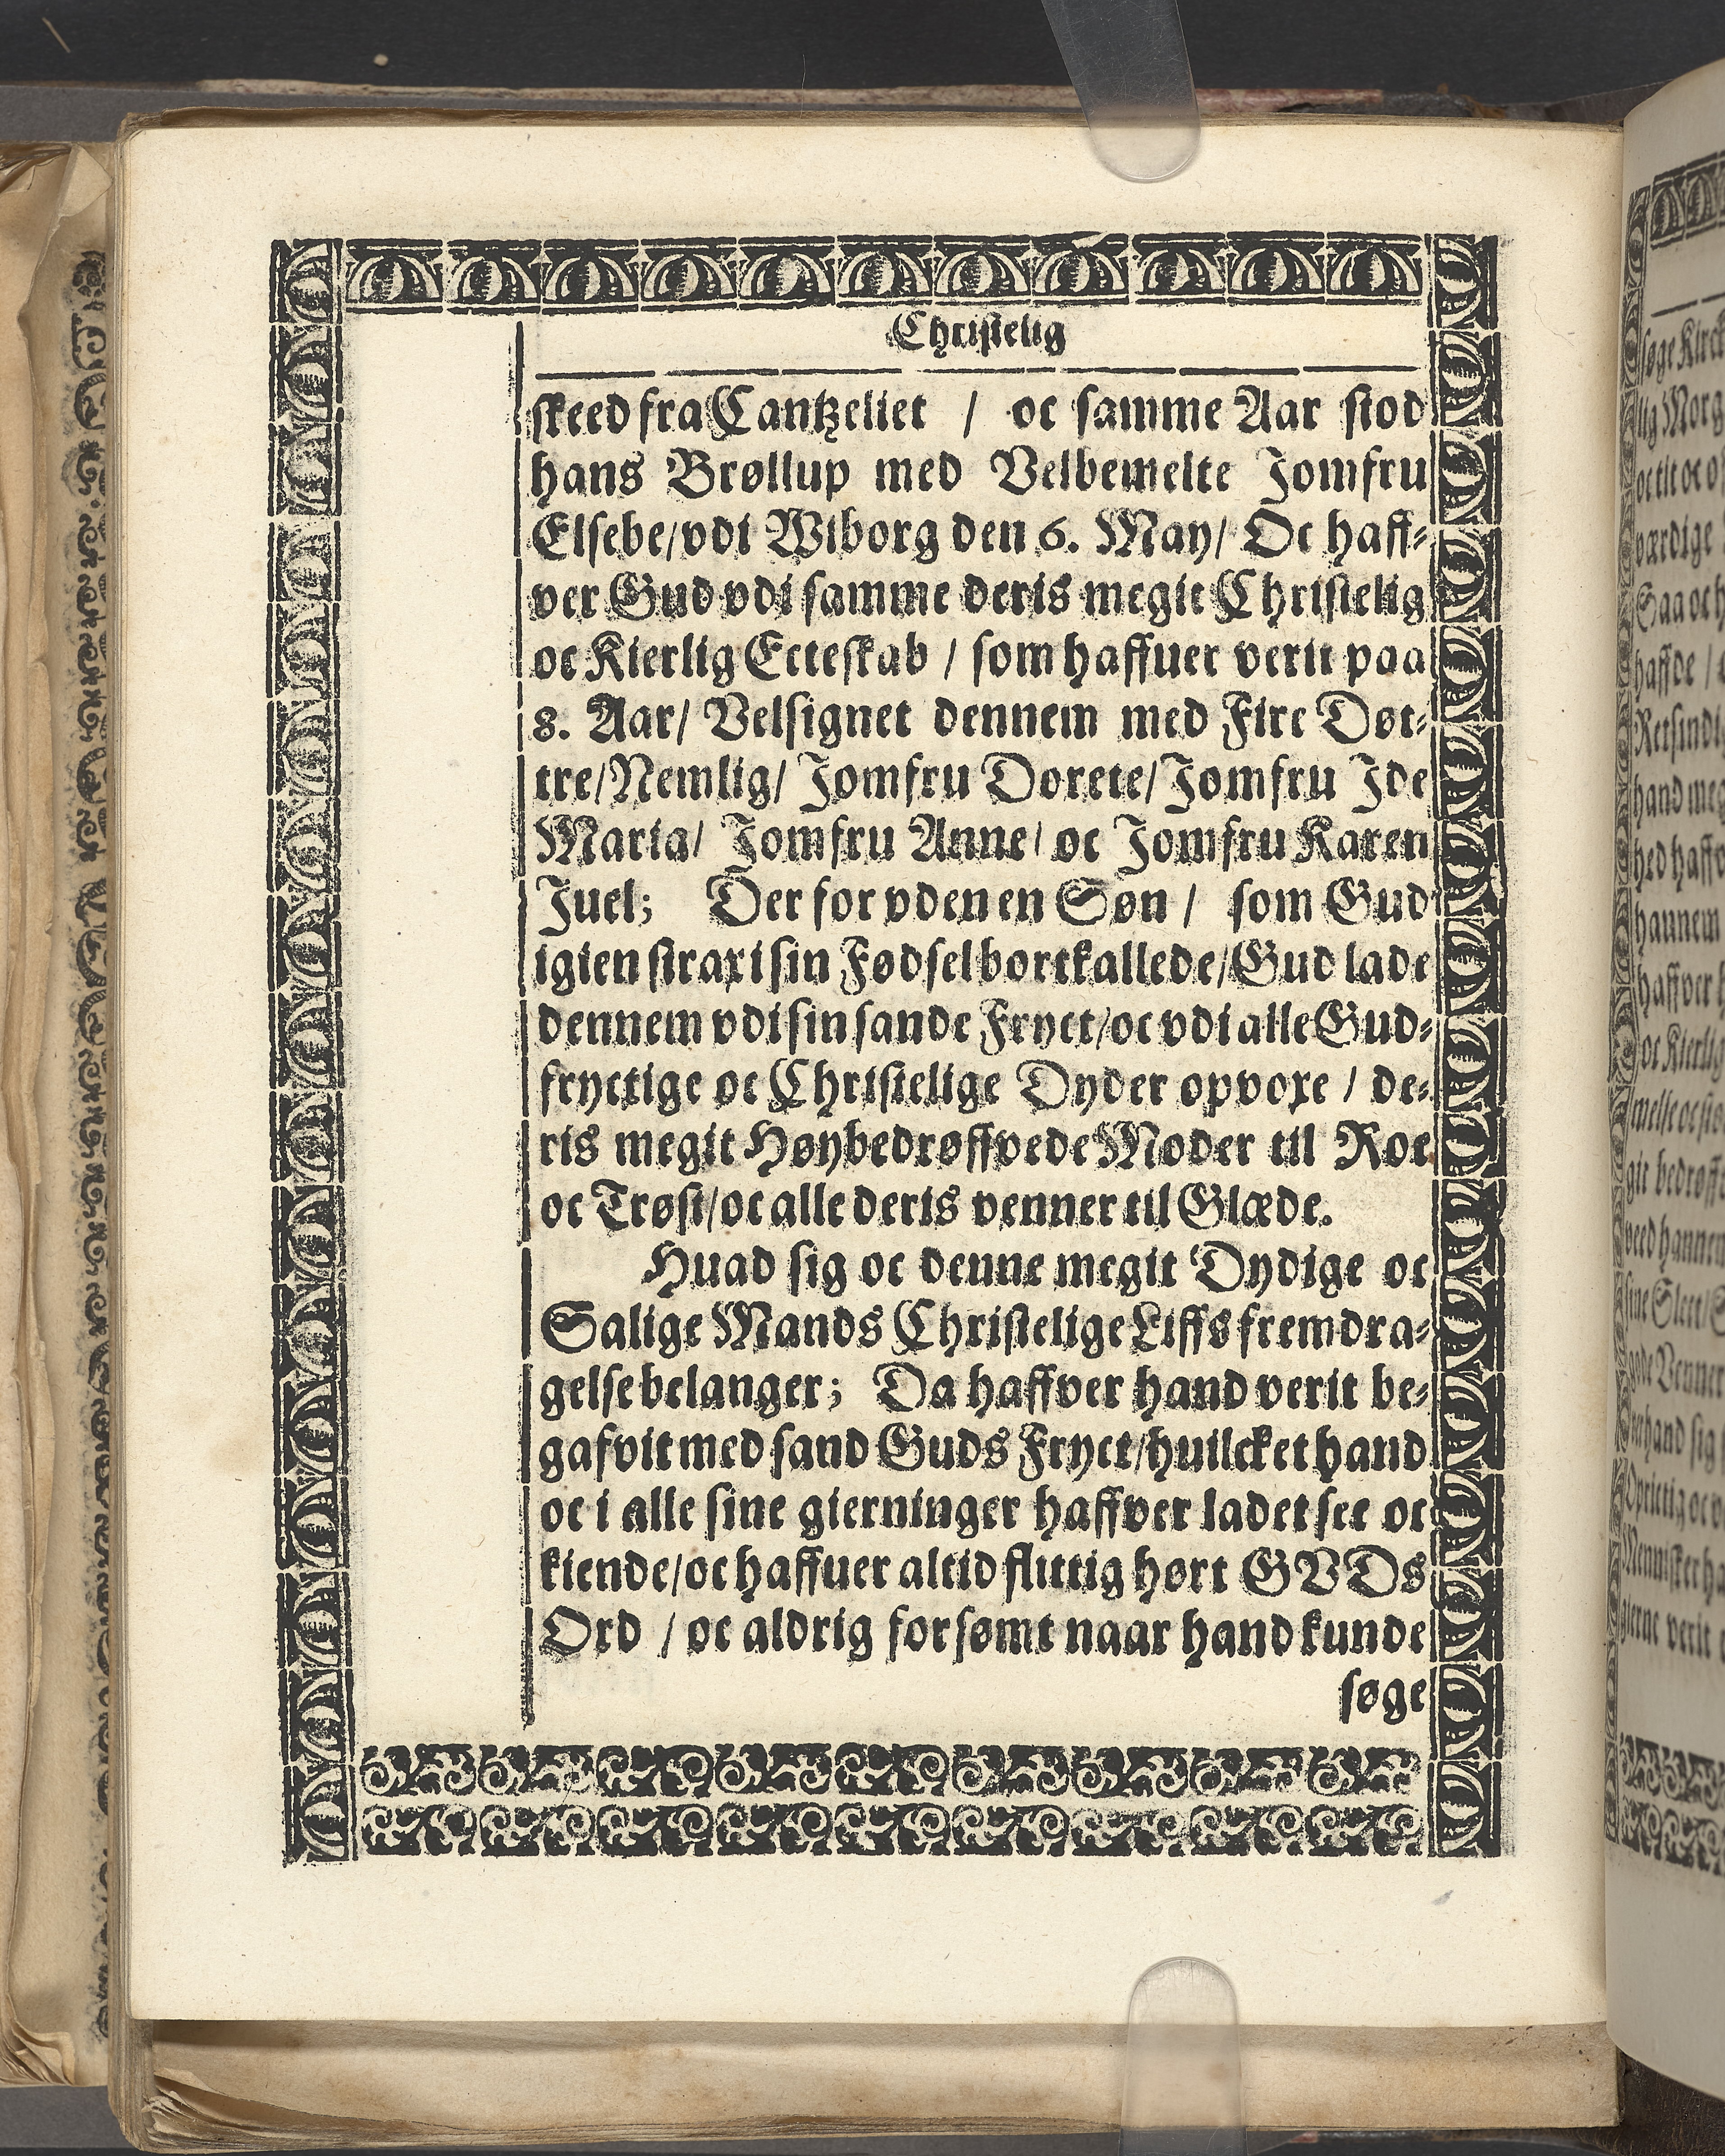 Christelig
skeed fra Cantzeliet / oc samme Aar stod
hans Brøllup med Velbemelte Jomfru
Elsebe/vdi Wiborg den 6. May/ Oc haff-
ver Gud vdi samme deris megit Christelig
oc Kierlig Ecteskab / som haffuer verit paa
8. Aar/ Velsignet dennem med Fire Døt-
tre/Nemlig/ Jomfru Dorete/Jomfru Jde
Maria/ Jomfru Anne/ oc Jomfru Karen
Juel; Der for vden en Søn / som Gud
igien strax i sin Fødsel bortkallede/Gud lade
dennem vdi sin sande Fryct/oc vdi alle Gud-
fryctige oc Christelige Dyder opvoxe / de-
ris megit Høybedrøffvede Moder til Roe
oc Trøst/oc alle deris venner til Glæde.
Huad sig oc denne megit Dydige oc
Salige Mands Christelige Liffs fremdra-
gelse belanger; Da haffver hand verit be-
gafvit med sand Guds Fryct/huilcket hand
oc i alle sine gierninger haffver ladet see oc
kiende/oc haffuer altid flittig hørt GVDs
Ord / oc aldrig forsømt naar hand kunde
søge